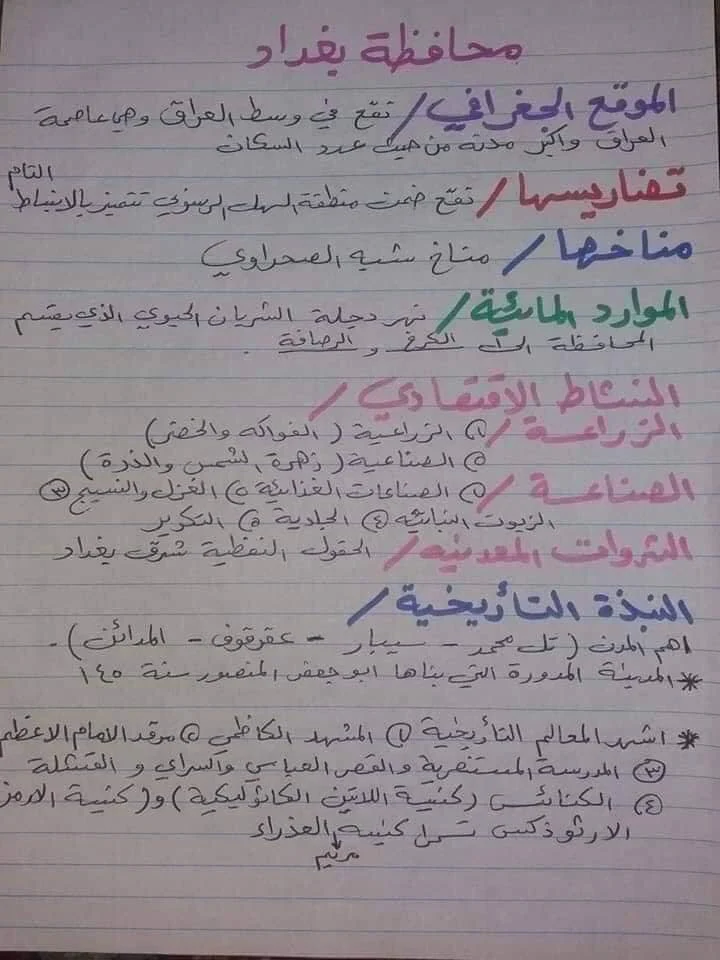 محافظة بغداد
الموقع الجغرافي / تقع في وسط العراق وهي عاصمة
العراق واكبر مدنه من حيث عدد السكان
تضاريسها / تقع ضمن منطقة السهل الرسوبي تتميز بالانبساط التام
مناخها / مناخ شبه الصحراوي
الموارد المائية / نهر دجلة الشريان الحيوي الذي يقسم
المحافظة الى الكرخ و الرصافة .
النشاط الاقتصادي /
الزراعة / ① الزراعية ( الفواكه والخضر )
② الصناعية ( زهرة الشمس والذرة )
الصناعة / ① الصناعات الغذائية ② الغزل والنسيج ③
الزيوت النباتية ④ الجلدية ⑤ التكرير
الثروات المعدنيه / الحقول النفطية شرق بغداد
النبذة التأريخية /
اهم المدن ( تل محمد - سيبار - عقرقوف - المدائن ) .
* المدينة المدورة التي بناها ابو جعفر المنصور سنة ١٤٥
* اشهر المعالم التأريخية ① المشهد الكاظمي ② مرقد الامام الاعظم
③ المدرسة المستنصرية والقصر العباسي والسراي و القشلة
④ الكنائس ( كنيسة اللاتين الكاثوليكية ) و ( كنيسة الارمن
الارثوذكس تسمى كنيسه العذراء
مريم